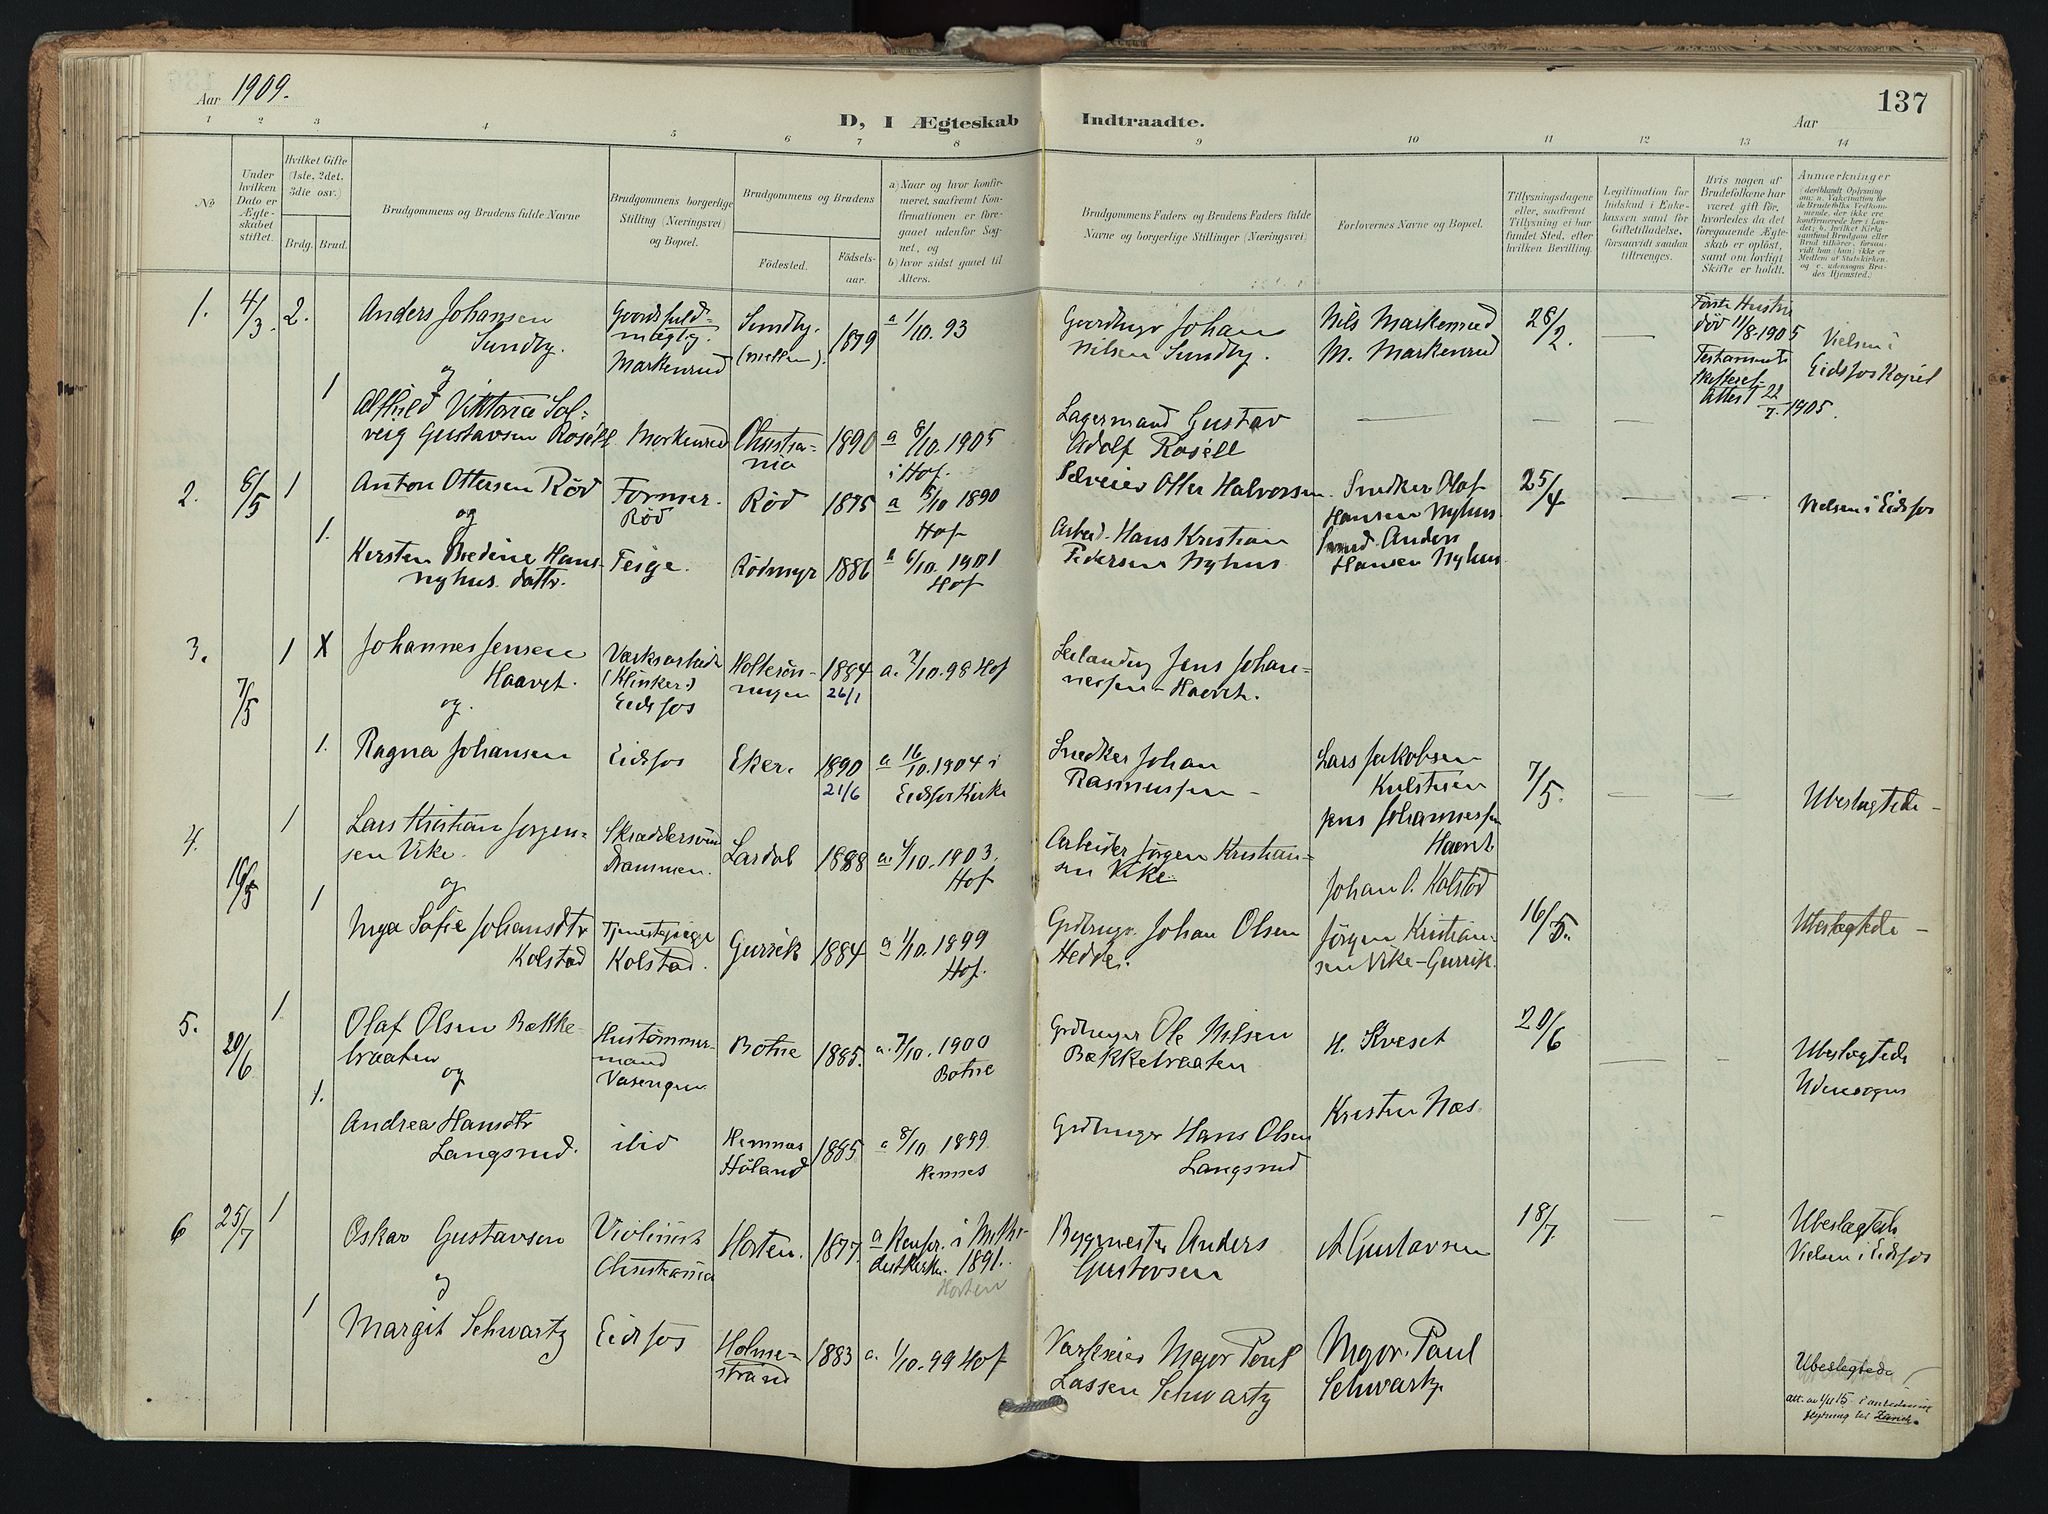 Aar 1909.
D, I Ægteskab Indtraadte.
Aar
137
1 2 3 4 5 6 7 8 9 10 11 12 13 14
No
Under hvilken Dato er Ægteskabet stiftet.
Hvilket Gifte (1ste, 2det, 3die osv.)
Brdg. Brud.
Brudgommens og Brudens fulde Navne
Brudgommens borgerlige Stilling (Næringsvei) og Bopæl.
Brudgommens og Brudens
Fødested.
Fødselsaar.
a) Naar og hvor konfirmeret, saafremt Konfirmationen er foregaaet udenfor Sognet, og
b) hvor sidst gaaet til Alters.
Brudgommens Faders og Brudens Faders fulde Navne og borgerlige Stillinger (Næringsvei)
Forlovernes Navne og Bopæl.
Tillysningsdagene eller, saafremt Tillysning ei har fundet Sted, efter hvilken Bevilling.
Legitimation for Indskud i Enkekassen samt for Giftetilladelse, forsaavidt saadan tiltrænges.
Hvis nogen af Brudefolkene har været gift før, hvorledes da det foregaaende Ægteskab er opløst, samt om lovligt Skifte er holdt.
Anmærkninger
1. 4/3. 2.
Anders Johansen
Sundby.
og
Markenrud
Sundby.
1879
a 1/10. 93
Johan
Nilsen Sundby.
Nils Markenrud
M. Markenrud
28/2.
—
Første Hustru
død 11/8-1905
Attest 22/7. 1905.
Nielsen i
Eidsfos Kapel
1
Alfhild Viktoria Sol-
veig Gustavsen Roséll
Markenrud
Christia-
nia
1890
a 8/10. 1905
i Hof.
Lagermand Gustav
Adolf Roséll
— — —
2. 8/5 1
Anton Ottersen Rød
og
Former.
Rød
Rød
1875
a 5/10 1890
Hof
Otter Halvorsen.
Snedker Olaf
Hansen Nyhus.
25/4
— —
Nielsen i Eidsfos
1.
Kirsten Bredine Hans-
nyhus. dattr.
Teige.
Rødmyr
1886
a 6/10. 1901
Hof
Arbeid. Hans Kristian
Pedersen Nyhus
Anders
Hansen Nyhus.
3. 7/5 1 X
Johannes Jensen
Haavet.
og.
Værksarbeider
(Klinker)
Eidsfos
1884
26/1
a. 2/10. 98 Hof
Jens Johan-
nessen - Haavet.
1.
Ragna Johansen
Eidsfos
Eker.
1890
21/6
a 16/10. 1904 i
Eidsfos Kirke
Snedker Johan
Rasmussen -
Lars Jakobsen
Jens Johannessen
Haavet
7/5.
— —
Ubeslægtede -
4. 16/5 1
Lars Kristian Jørgen-
sen Vike.
og
Skræddersvend
Drammen.
Lardal
1888
a. 4/10. 1903.
Hof
Arbeider Jørgen Kristian-
sen Vike
Johan O. Kolstad
1
Inga Sofie Johansdtr
Kolstad
Tjenestepige
Kolstad.
Gursik
1884
a 1/10. 1899
Hof.
Johan Olsen
Hedde.
Jørgen Kristian-
sen Vike-Gursik.
16/5.
Ubeslægtede -
5. 20/6 1
Olaf Olsen Bække-
braaten
og
Hustømmer-
mand
Vasengen
Botne
1885.
a. 7/10. 1900
Botne
Ole Nilsen
Bækkebraaten
H. Kveset
20/6
— —
Ubeslægtede
Udensogns
1.
Andrea Hansdtr
Langsrud.
ibid
Remnes
Høland
1885
a 8/10 1899
Remnes
Hans Olsen
Langsrud
Kristen Næs
6 25/7 1
Oskar Gustavsen
og
Violinist
Christiania
Horten.
1877.
a Konfr. i Metho-
distkirken 1891.
Horten
Bygmester Anders
Gustavsen
A Gustavsen
18/7.
— -
Ubeslægtede
Nielsen i Eidsfos
1
Margit Schwartz
Eidsfos
Holme-
strand
1883
a. 1/10. 99 Hof
Major Poul
Lassen Schwartz
Major. Paul
Schwartz
Ubeslegtede